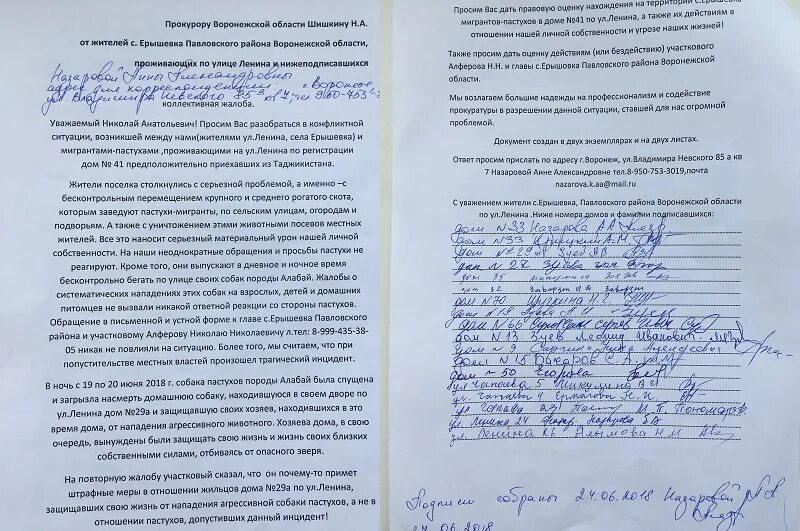 Прокурору Воронежской области Шишкину Н.А.
от жителей с. Ерышевка Павловского района Воронежской области,
проживающих по улице Ленина и нижеподписавшихся
Назаровой Анны Александровны
адрес для корреспонденции г. Воронеж
ул. Владимира Невского 85
коллективная жалоба.
Уважаемый Николай Анатольевич! Просим Вас разобраться в конфликтной
ситуации, возникшей между нами(жителями ул.Ленина, села Ерышевка) и
мигрантами-пастухами ,проживающими на ул.Ленина по регистрации
дом № 41 предположительно приехавших из Таджикистана.
Жители поселка столкнулись с серьезной проблемой, а именно –с
бесконтрольным перемещением крупного и среднего рогатого скота,
которым заведуют пастухи-мигранты, по сельским улицам, огородам и
подворьям. А также с уничтожением этими животными посевов местных
жителей. Все это наносит серьезный материальный урон нашей личной
собственности. На наши неоднократные обращения и просьбы пастухи не
реагируют. Кроме того, они выпускают в дневное и ночное время
бесконтрольно бегать по улице своих собак породы Алабай. Жалобы о
систематических нападениях этих собак на взрослых, детей и домашних
питомцев не вызвали никакой ответной реакции со стороны пастухов.
Обращение в письменной и устной форме к главе с.Ерышевка Павловского
района и участковому Алферову Николаю Николаевичу л.тел: 8-999-435-38-
05 никак не повлияли на ситуацию. Более того, мы считаем, что при
попустительстве местных властей произошел трагический инцидент.
В ночь с 19 по 20 июня 2018 г. собака пастухов породы Алабай была спущена
и загрызла насмерть домашнюю собаку, находившуюся в своем дворе по
ул.Ленина дом №29а и защищавшую своих хозяев, находившихся в это
время дома, от нападения агрессивного животного. Хозяева дома, в свою
очередь, вынуждены были защищать свою жизнь и жизнь своих близких
собственными силами, отбиваясь от опасного зверя.
На повторную жалобу участковый сказал, что он почему-то примет
штрафные меры в отношении жильцов дома №29а по ул.Ленина,
защищавших свою жизнь от нападения агрессивной собаки пастухов, а не в
отношении пастухов, допустивших данный инцидент!
Просим Вас дать правовую оценку нахождения на территории с.Ерышевка
мигрантов-пастухов в доме №41 по ул.Ленина, а также их действиям в
отношении нашей личной собственности и угрозе наших жизней!
Также просим дать оценку действиям (или бездействию) участкового
Алферова Н.Н. и главы с.Ерышевка Павловского района Воронежской
области.
Мы возлагаем большие надежды на профессионализм и содействие
прокуратуры в разрешении данной ситуации, ставшей для нас огромной
проблемой.
Документ создан в двух экземплярах и на двух листах.
Ответ просим прислать по адресу г.Воронеж, ул.Владимира Невского 85 а кв
7 Назаровой Анне Александровне тел.8-950-753-3019,почта
nazarova.k.aa@mail.ru
С уважением жители с.Ерышевка, Павловского района Воронежской области
по ул.Ленина .Ниже номера домов и фамилии подписавшихся:
дом №33 Назарова А А
дом №33 А.М.
дом № 29а Зуев
дом № 27 Зуева
дом 35
дом 32
дом №70 Н.С.
дом №18
дом №66
дом № 13 Зуев Леонид Иванович
дом № 9
дом №15 Бокарев С. А.
дом № 50 Егорова
ул Чапаева 5 Пикулина В
ул. Чапаева 4 Ермакова Н. И
ул Чапаева М П Пономарёв
ул. Ленина 24
ул. Ленина Алымова Н М
Подписи собраны 24.06.2018 Назаровой А А
06.2018